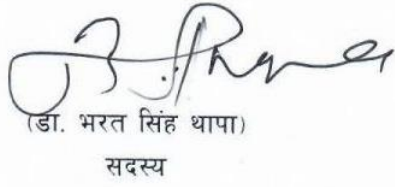 (डा. भरत सिंह थापा)
सदस्य